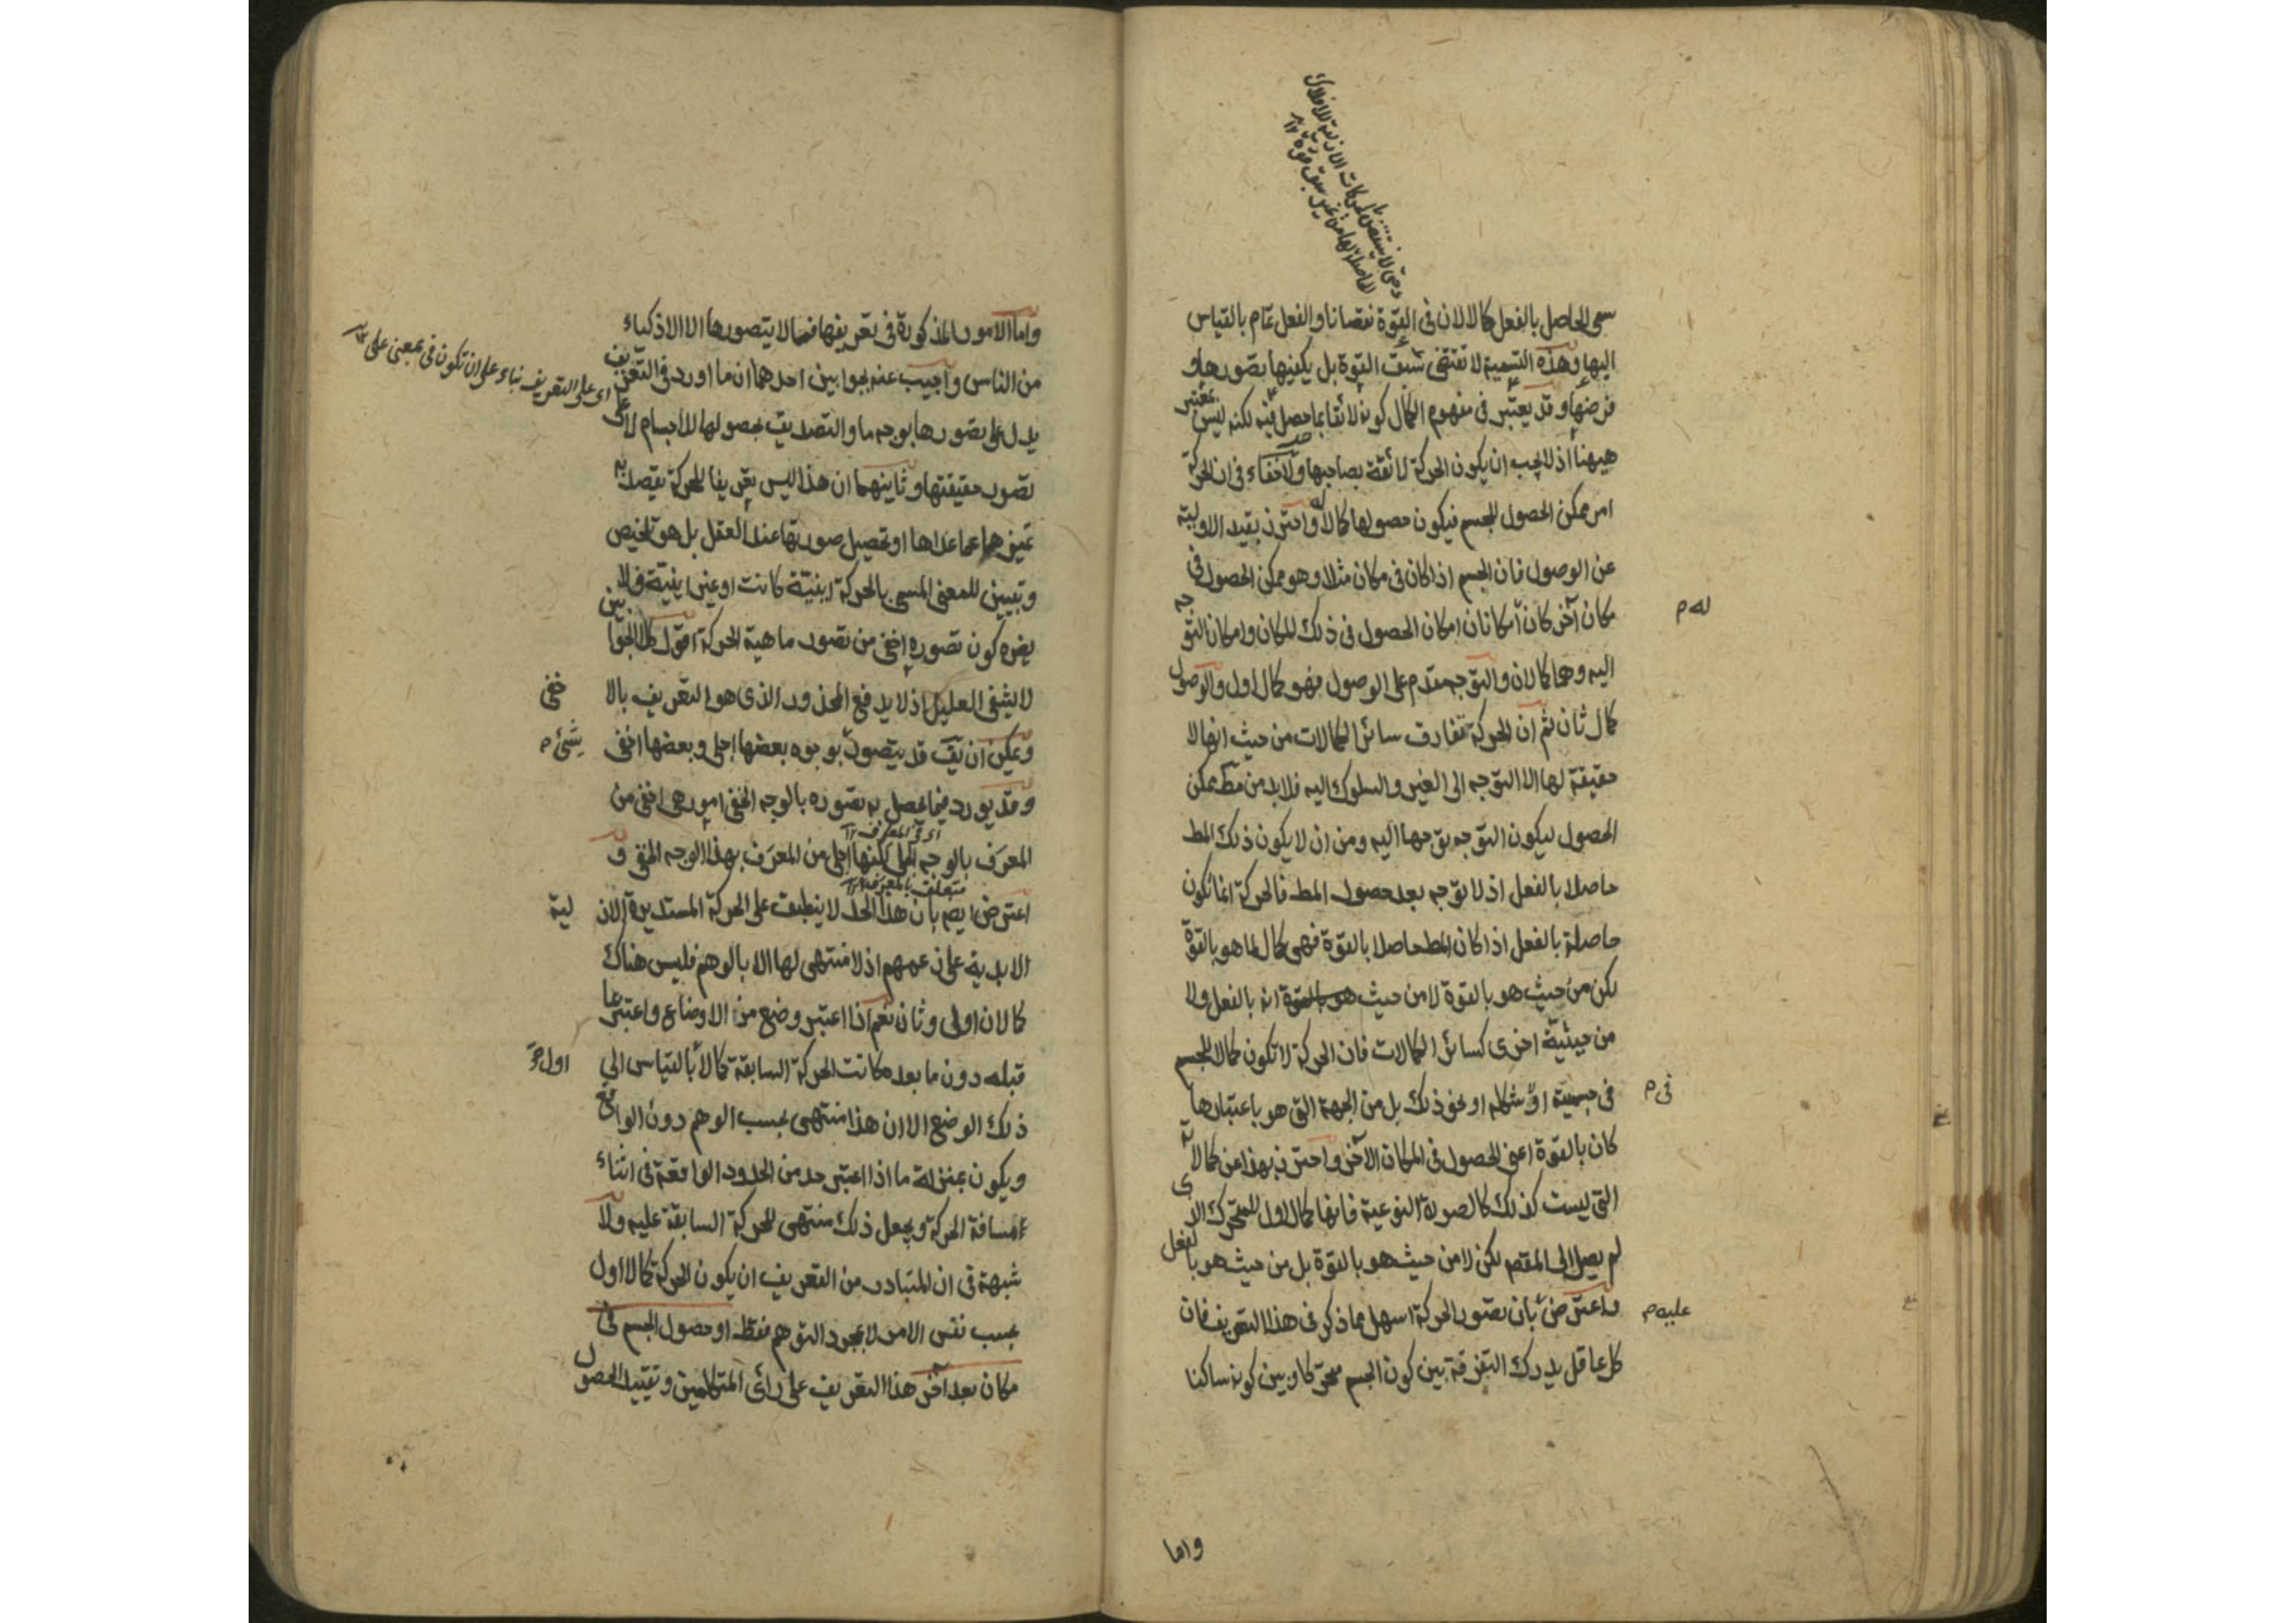 وحتى لا ينتقض بالحركات الازلية للافلاك
الحاصلة لها من غير سبق قوة ١٢
سمى الحاصل بالفعل كمالا لان فى القوة نقصانا والفعل تمام بالقياس
اليها وهذه التسمية لا تقتضى سبق القوة بل يكفيها تصورها و
فرضها وقد يعتبر فى مفهوم الكمال كونه لائقا بما حصل فيه لكنه ليس بمعتبر
ههنا اذ لا يجب ان يكون الحركة لائقة بصاحبها ولا خفاء فى ان الحركة
امر ممكن الحصول للجسم فيكون حصولها كمالا له واحترز بقيد الاولية
عن الوصول فان الجسم اذا كان فى مكان مثلا وهو ممكن الحصول فى
مكان آخر كان امكانان امكان الحصول فى ذلك المكان وامكان التوجه
له م
اليه وهما كمالان والتوجه مقدم على الوصول فهو كمال اول والوصول
كمال ثان ثم ان الحركة تفارق سائر الكمالات من حيث انها لا
حقيقة لها الا التوجه الى الغير والسلوك اليه فلا بد من مط ممكن
الحصول ليكون التوجه توجها اليه ومن ان لا يكون ذلك المط
حاصلا بالفعل اذ لا توجه بعد حصول المط فالحركة انما تكون
حاصلة بالفعل اذا كان المط حاصلا بالقوة فهى كمال لما هو بالقوة
لكن من حيث هو بالقوة لا من حيث هو بالقوة انه بالفعل ولا
من حيثية اخرى كسائر الكمالات فان الحركة لا تكون كمالا للجسم
فى جسمية او شكله او نحو ذلك بل من الجهة التى هو باعتبارها
فى م
كان بالقوة اعنى الحصول فى المكان الآخر واحترز بهذا عن كمالاته
التى ليست كذلك كالصورة النوعية فانها كمال اول للمتحرك الذى
لم يصل الى المقصد لكن لا من حيث هو بالقوة بل من حيث هو بالفعل
واعترض بان تصور الحركة اسهل مما ذكر فى هذا التعريف فان
عليه م
كل عاقل يدرك التفرقة بين كون الجسم متحركا وبين كونه ساكنا
واما
واما الامور المذكورة فى تعريفها فمما لا يتصورها الا الاذكياء
من الناس واجيب عنه بجوابين احدهما ان ما اورد فى التعريف
اى على التعريف بناء على ان تكون فى بمعنى على ١٢
يدل على تصورها بوجه ما والتصديق بحصولها للاجسام لا على
تصور حقيقتها وثانيهما ان هذا ليس تعريفا للحركة يقصد به
تميزها عما عداها او تحصيل صورتها عند العقل بل هو تلخيص
وتبيين للمعنى المسمى بالحركة اينية كانت او غير اينية فلا
يضره كون تصوره اخفى من تصور ماهية الحركة اقول كلا الجوابين
لا يشفى العليل اذ لا يدفع المحذور الذى هو التعريف بالا
خفى
ويمكن ان يق قد يتصور بوجوه بعضها اجلى وبعضها اخفى
شئ م
وقد يورد فيما يحصل به تصوره بالوجه الخفى امور هى اخفى من
اى فى المعرف ١٢
المعرف بالوجه الجلى لكنها اجلى من المعرف بهذا الوجه الخفى و
متعلق بالمعرف ١٢
اعترض ايضا بان هذا الحد لا ينطبق على الحركة المستديرة الاز
لية
الابدية على زعمهم اذ لا منتهى لها الا بالوهم فليس هناك
كمالان اولى وثان نعم اذا اعتبر وضع من الاوضاع واعتبر ما
قبله دون ما بعده كانت الحركة السابقة كمالا بالقياس الى
اول
ذلك الوضع الا ان هذا منتهى بحسب الوهم دون الواقع
ويكون بمنزلة ما اذا اعتبر حد من الحدود الواقعة فى اثناء
مسافة الحركة ويجعل ذلك منتهى للحركة السابقة عليه ولا
شبهة فى ان المتبادر من التعريف ان يكون الحركة كمالا اول
بحسب نفس الامر لا بمجرد التوهم فقط او حصول الجسم فى
مكان بعد آخر هذا التعريف على رأى المتكلمين وتقييد الحصول